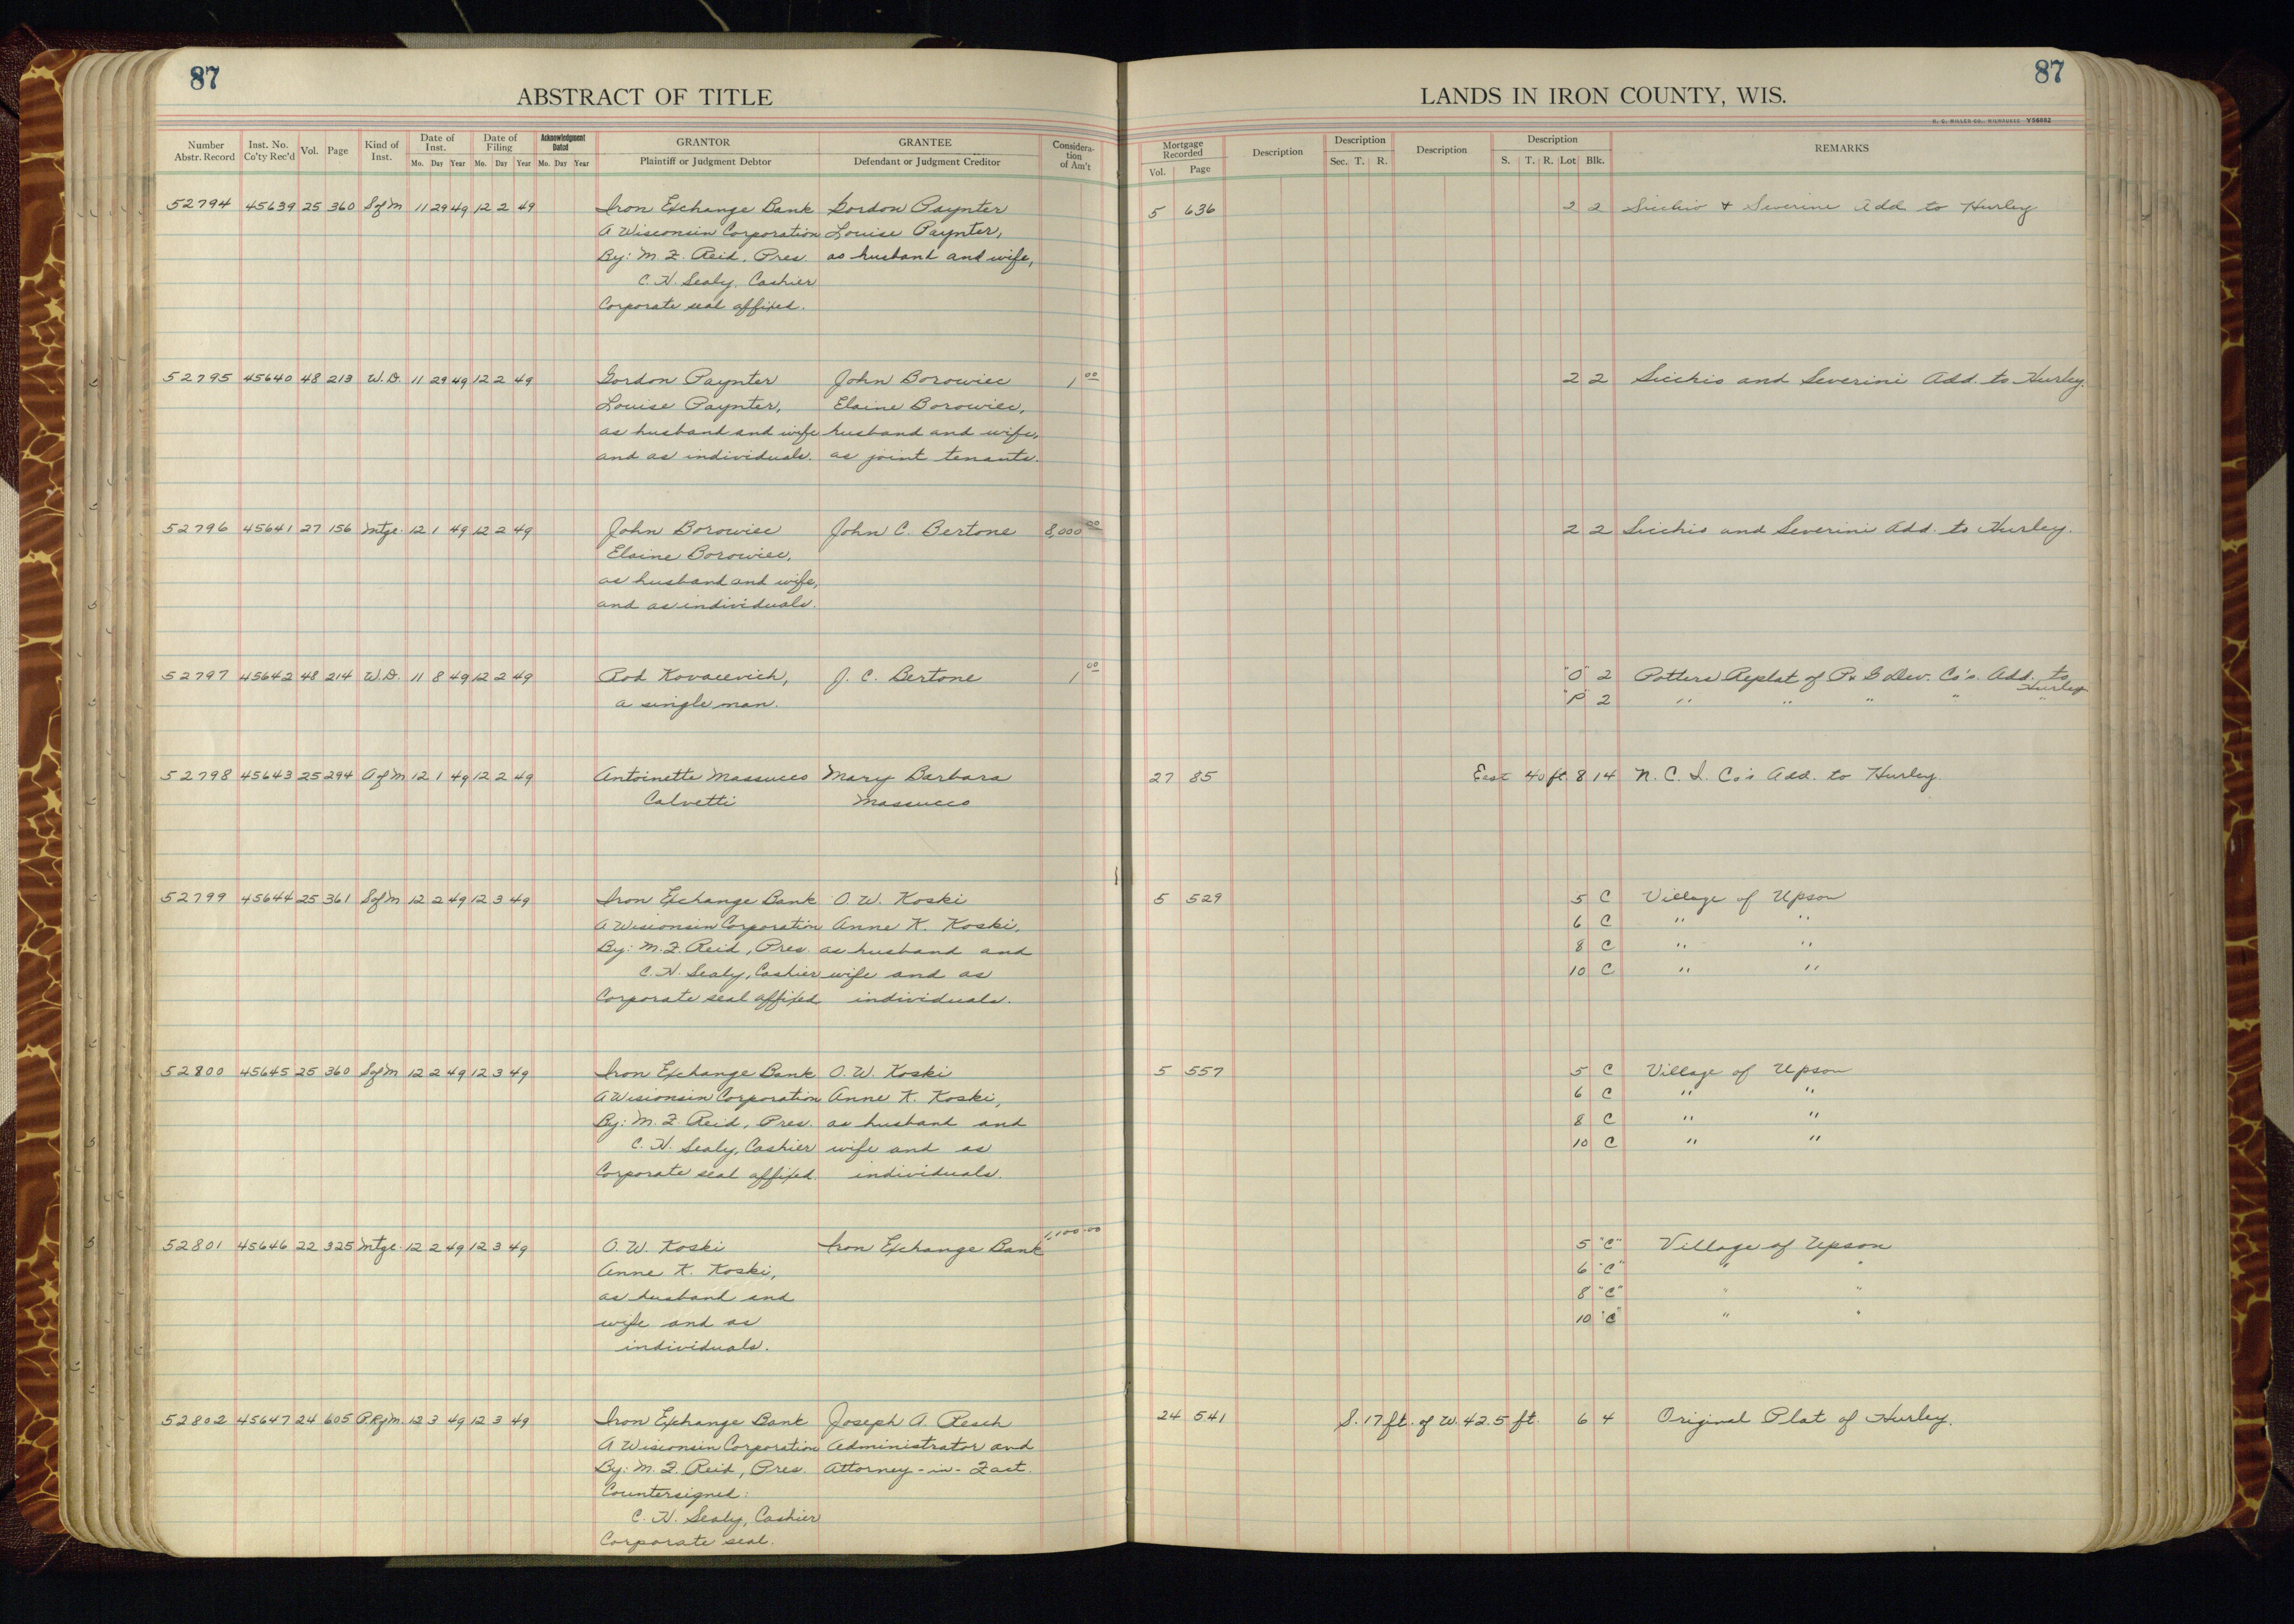 87
ABSTRACT OF TITLE
Number Abstr. Record Inst. No. Co'ty Rec'd Vol. Page Kind of Inst. Date of Inst. Mo. Day Year Date of Filing Mo. Day Year Acknowledgment Dated Mo. Day Year GRANTOR Plaintiff or Judgment Debtor GRANTEE Defendant or Judgment Creditor Considera-tion of Am't
52794 45639 25 360 S of M 11 29 49 12 2 49 Iron Exchange Bank Gordon Paynter
A Wisconsin Corporation Louise Paynter,
By: M. F. Reid, Pres. as husband and wife,
C. H. Sealy, Cashier
Corporate seal affixed.
52795 45640 48 213 W.D. 11 29 49 12 2 49 Gordon Paynter John Borowiec 1 00
Louise Paynter, Elaine Borowiec,
as husband and wife husband and wife,
and as individuals. as joint tenants.
52796 45641 27 156 Mtge. 12 1 49 12 2 49 John Borowiec John C. Bertone 8,000 00
Elaine Borowiec,
as husband and wife,
and as individuals.
52797 45642 48 214 W.D. 11 8 49 12 2 49 Rod Kovacevich, J. C. Bertone 1 00
a single man.
52798 45643 25 294 A of M 12 1 49 12 2 49 Antoinette Massucco Mary Barbara
Calvetti Massucco
52799 45644 25 361 S of M 12 2 49 12 3 49 Iron Exchange Bank O. W. Koski
A Wisconsin Corporation Anne K. Koski,
By: M. F. Reid, Pres. as husband and
C. H. Sealy, Cashier wife and as
Corporate seal affixed individuals.
52800 45645 25 360 S of M 12 2 49 12 3 49 Iron Exchange Bank O. W. Koski
A Wisconsin Corporation Anne K. Koski,
By: M. F. Reid, Pres. as husband and
C. H. Sealy, Cashier wife and as
Corporate seal affixed. individuals.
52801 45646 22 325 Mtge. 12 2 49 12 3 49 O. W. Koski Iron Exchange Bank 1,100.00
Anne K. Koski,
as husband and
wife and as
individuals.
52802 45647 24 605 P.R. of M. 12 3 49 12 3 49 Iron Exchange Bank Joseph A. Resch
A Wisconsin Corporation Administrator and
By: M. F. Reid, Pres. Attorney-in-Fact.
Countersigned:
C. H. Sealy, Cashier
Corporate seal.
87
LANDS IN IRON COUNTY, WIS.
H. C. MILLER CO., MILWAUKEE Y56862
Mortgage Recorded Vol. Page Description Description Sec. T. R. Description Description S. T. R. Lot Blk. REMARKS
5 636 2 2 Sicchio & Severini Add to Hurley
2 2 Sicchio and Severini Add. to Hurley.
2 2 Sicchio and Severini Add. to Hurley.
"O" 2 Potters Replat of P & G Dev. Co's. Add. to Hurley
"P" 2 " " " " "
27 85 East 40 ft. 8 14 N. C. I. Co's Add. to Hurley.
5 529 5 C Village of Upson
6 C " "
8 C " "
10 C " "
5 557 5 C Village of Upson
6 C " "
8 C " "
10 C " "
5 "C" Village of Upson
6 "C" " "
8 "C" " "
10 "C" " "
24 541 S. 17 ft. of W. 42.5 ft. 6 4 Original Plat of Hurley.